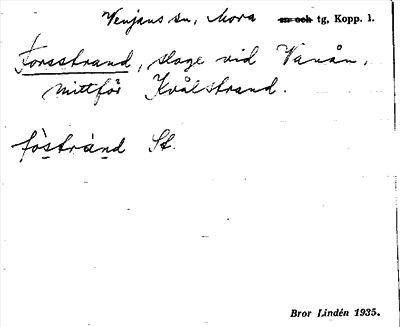 Venjans sn, Mora sn och tg, Kopp. l.
Forsstrand, sloge vid Vanån,
mittför Kvålstrand.
fòstrànd St.
Bror Lindén 1935.